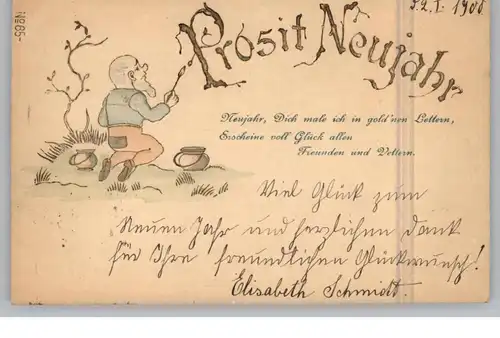 No 65-
Prosit Neujahr
Neujahr, Dich male ich in gold'nen Lettern,
Erscheine voll Glück allen
Freunden und Vettern.
Viel Glück zum
Neuen Jahr und herzlichen Dank
für Ihre freundlichen Glückwunsch!
Elisabeth Schmidt.